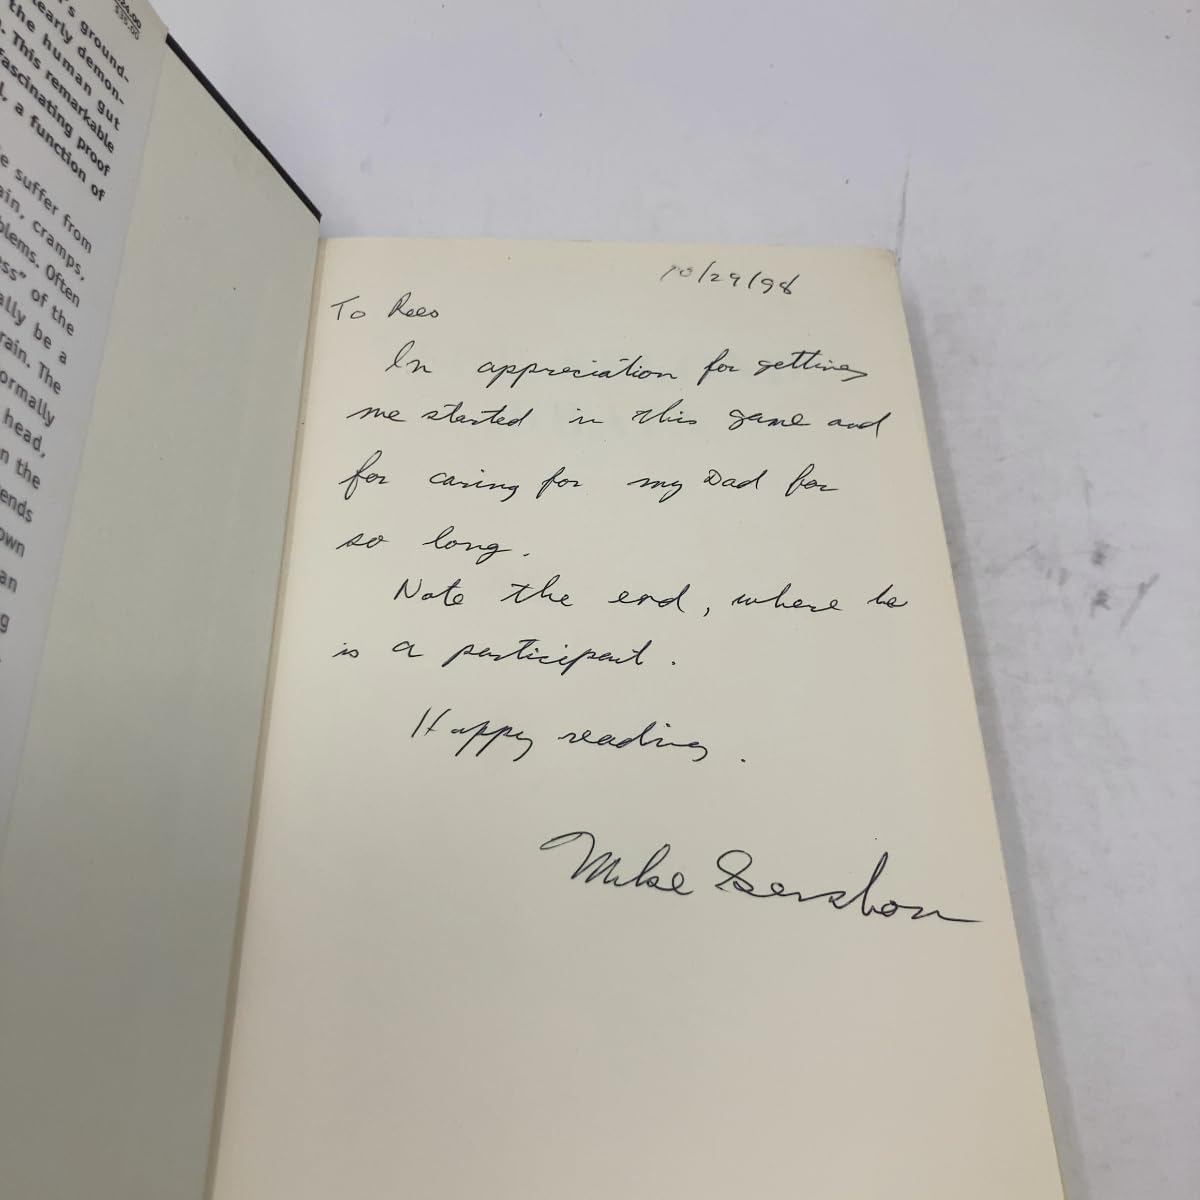 24.00
$35.00
's ground-
early demon-
the human gut
. This remarkable
fascinating proof
, a function of
e suffer from
ain, cramps,
blems. Often
ess" of the
ally be a
rain. The
ormally
head,
n the
ends
own
an
g
10/29/98
To Rees
In appreciation for getting
me started in this game and
for caring for my Dad for
so long.
Note the end, where he
is a participant.
Happy reading.
Mike Gershon